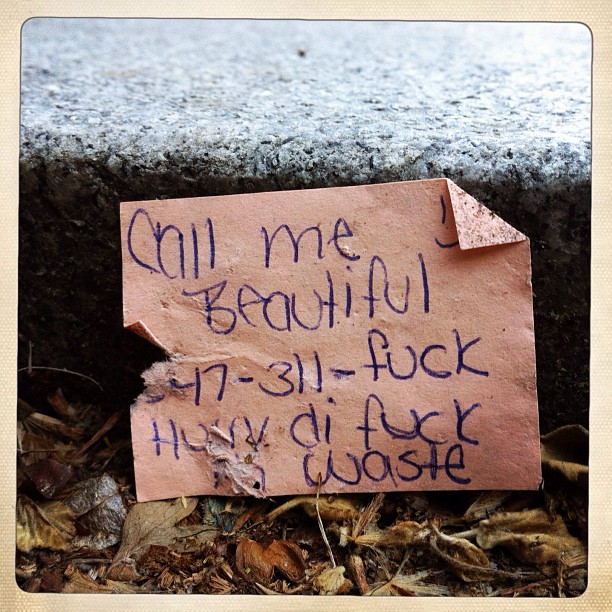 Call me :)
Beautiful
347-311-fuck
Hurry di fuck
waste